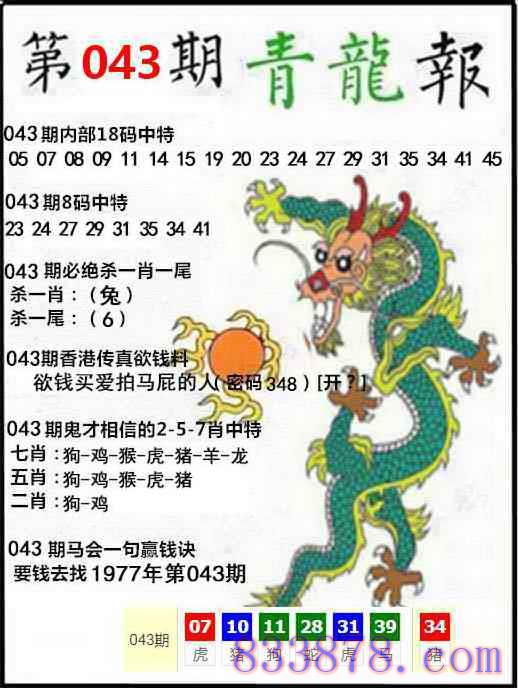 第043期青龍報
043期内部18码中特
05 07 08 09 11 14 15 19 20 23 24 27 29 31 35 34 41 45
043期8码中特
23 24 27 29 31 35 34 41
043 期必绝杀一肖一尾
杀一肖：（兔）
杀一尾：（6）
043期香港传真欲钱料
欲钱买爱拍马屁的人(密码348)[开?]
043期鬼才相信的2-5-7肖中特
七肖：狗-鸡-猴-虎-猪-羊-龙
五肖：狗-鸡-猴-虎-猪
二肖：狗-鸡
043 期马会一句赢钱诀
要钱去找1977年第043期
043期 07 10 11 28 31 39 34
虎 猪 狗 蛇 虎 马 猪
833878.com